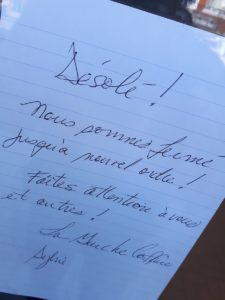 Désolé !
Nous sommes fermé
jusqu'à nouvel ordre !
Faites attention à vous
et autres !
La Ruche
Sylvie